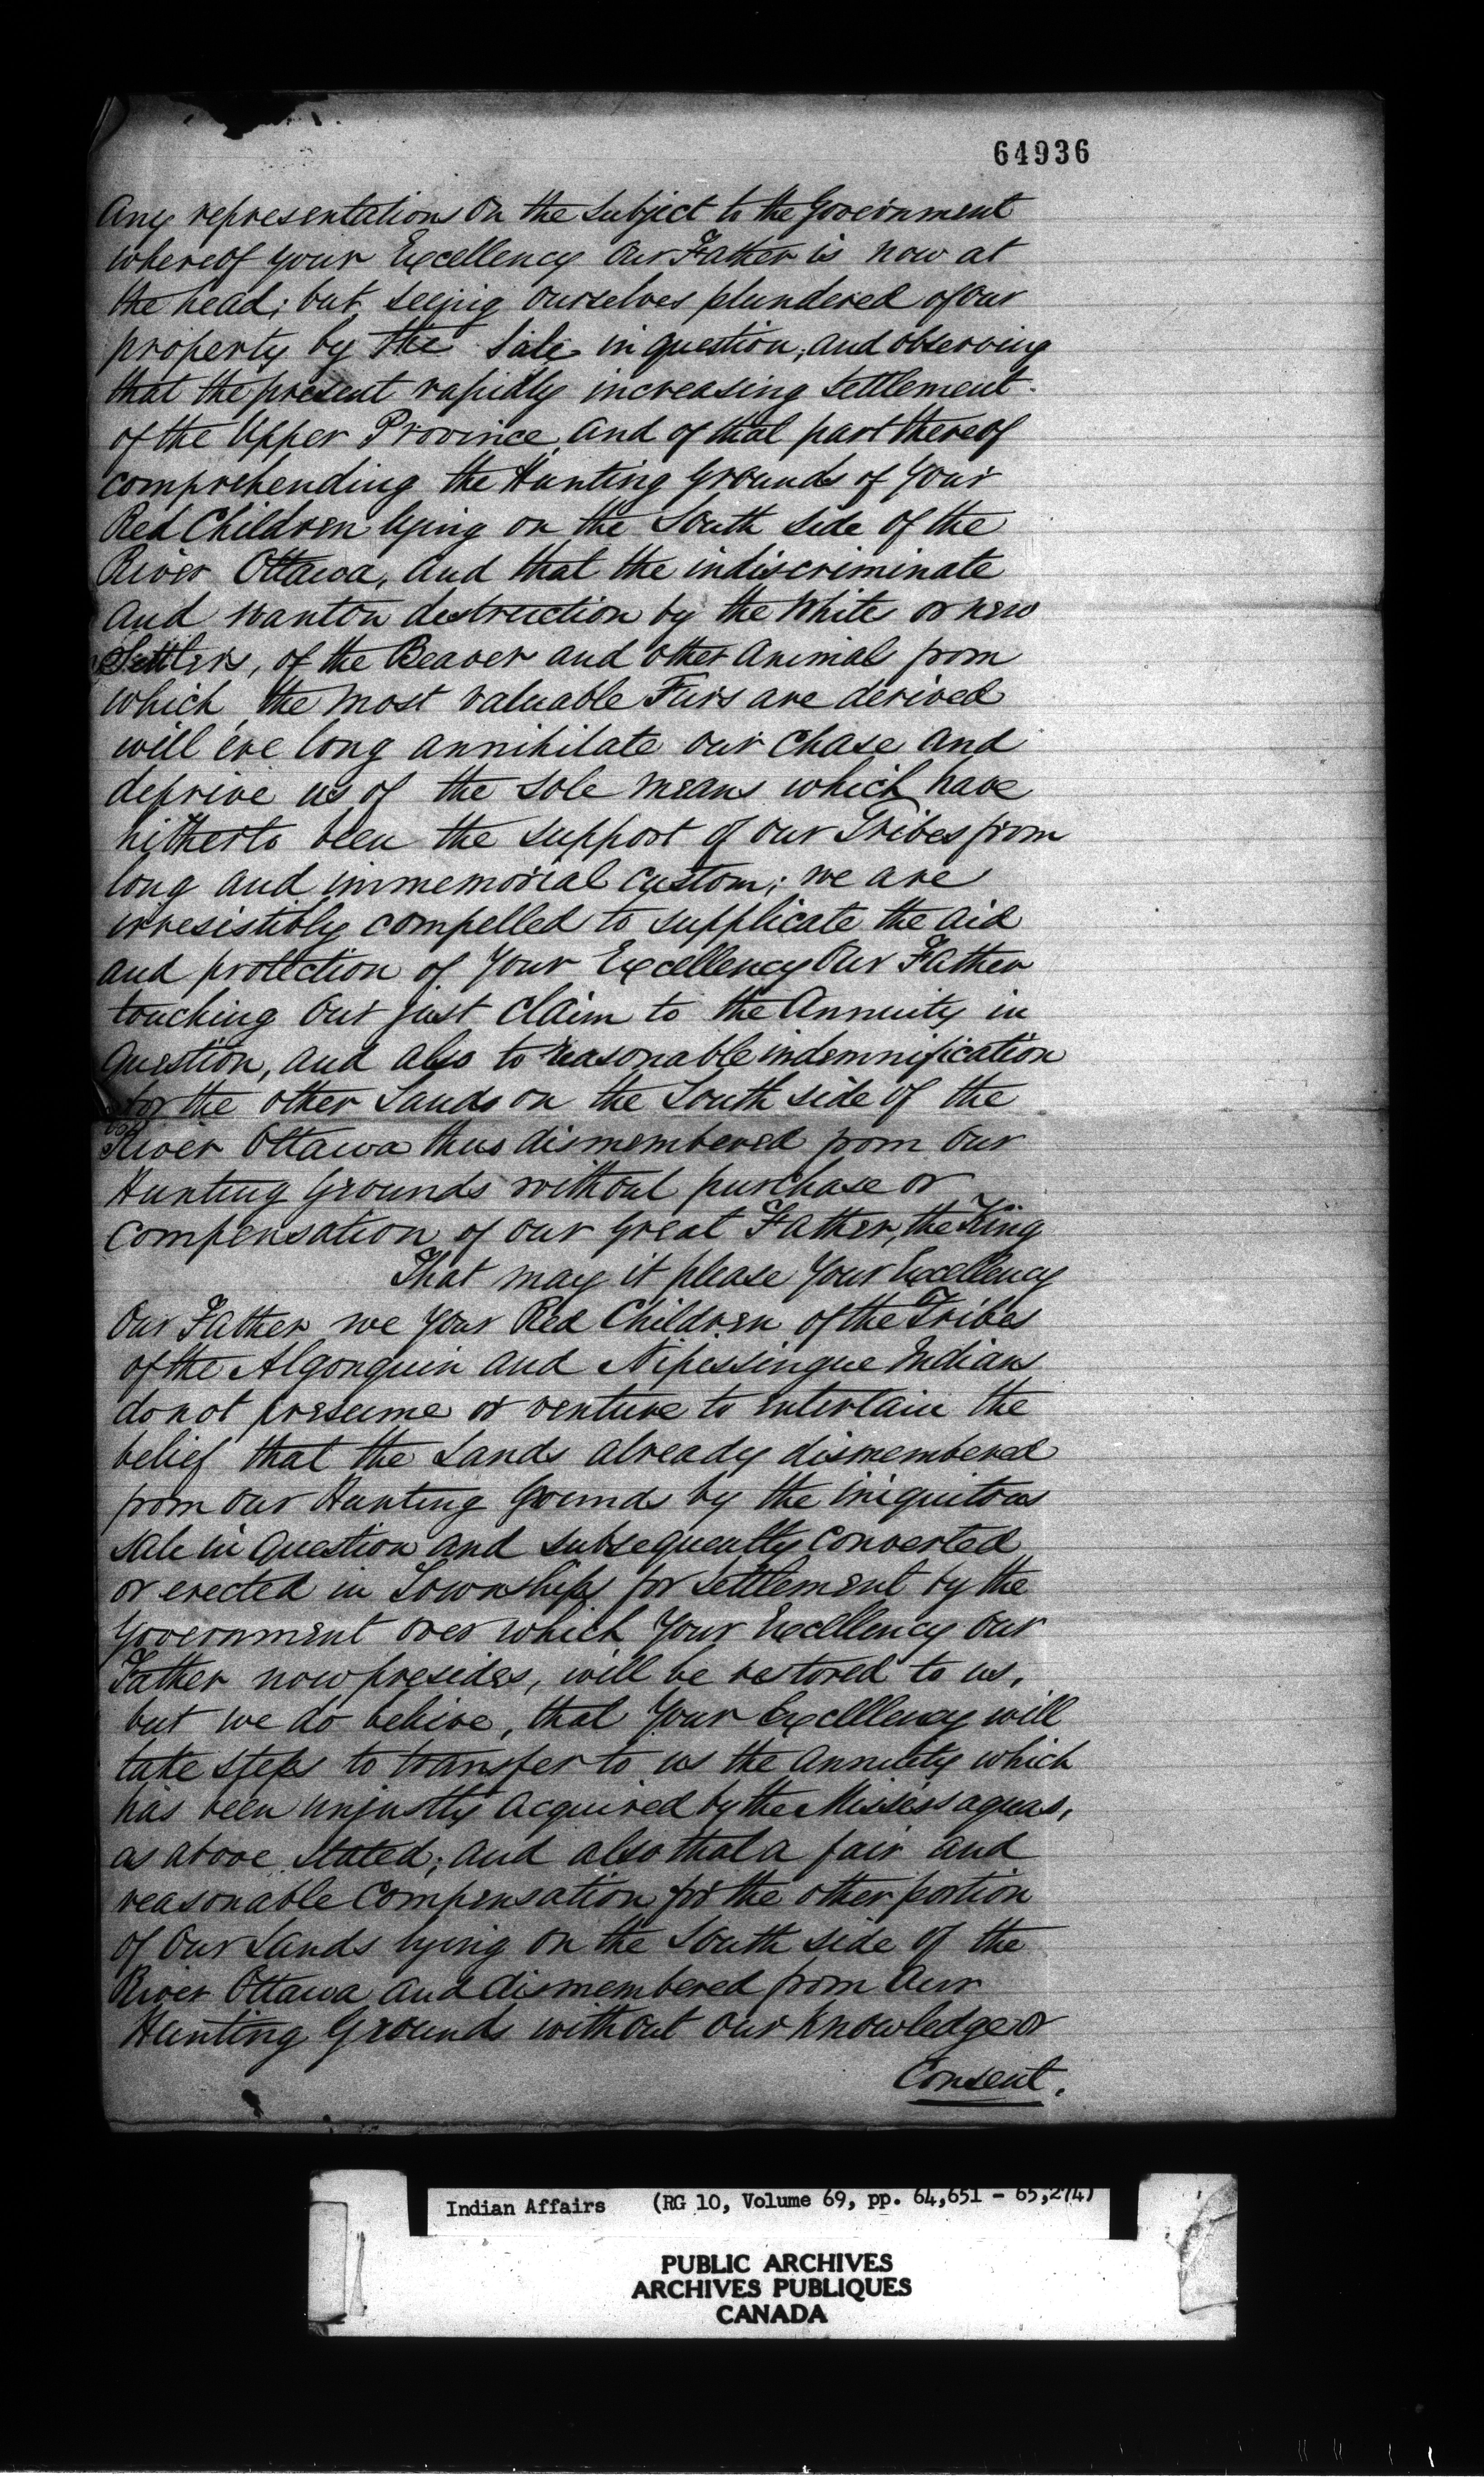 64936
Any representations On the Subject to the Government
whereof your Excellency Our Father is now at
the head; but seeing Ourselves plundered of our
property by the Sale in question, and observing
that the present rapidly increasing Settlement
of the Upper Province and of that part thereof
comprehending the Hunting Grounds of Your
Red Children lying on the South side of the
River Ottawa, and that the indiscriminate
and wanton destruction by the White or new
Settlers, of the Beaver and other Animals from
which the most valuable Furs are derived
will ere long annihilate our Chase and
deprive us of the sole means which have
hitherto been the support of our Tribes from
long and immemorial custom; we are
irresistibly compelled to supplicate the aid
and protection of Your Excellency Our Father
touching Our just Claim to the Annuity in
Question, and also to reasonable indemnification
for the other Lands on the South side of the
River Ottawa thus dismembered from Our
Hunting Grounds without purchase or
Compensation of our Great Father, the King
That may it please Your Excellency
Our Father we Your Red Children of the Tribes
of the Algonquin and Nipissingue Indians
do not presume or venture to entertain the
belief that the Lands already dismembered
from our Hunting Grounds by the iniquitous
sale in Question and subsequently converted
or erected in Townships for Settlement by the
Government over which Your Excellency our
Father now presides, will be restored to us,
but we do believe, that Your Excelllency will
take steps to transfer to us the Annuity which
has been unjustly acquired by the Missessaguas,
as above stated; and also that a fair and
reasonable Compensation for the other portion
of Our Lands lying on the South side of the
River Ottawa and dismembered from Our
Hunting Grounds without our knowledge or
Consent.
Indian Affairs (RG 10, Volume 69, pp. 64,651 - 65,274)
PUBLIC ARCHIVES
ARCHIVES PUBLIQUES
CANADA